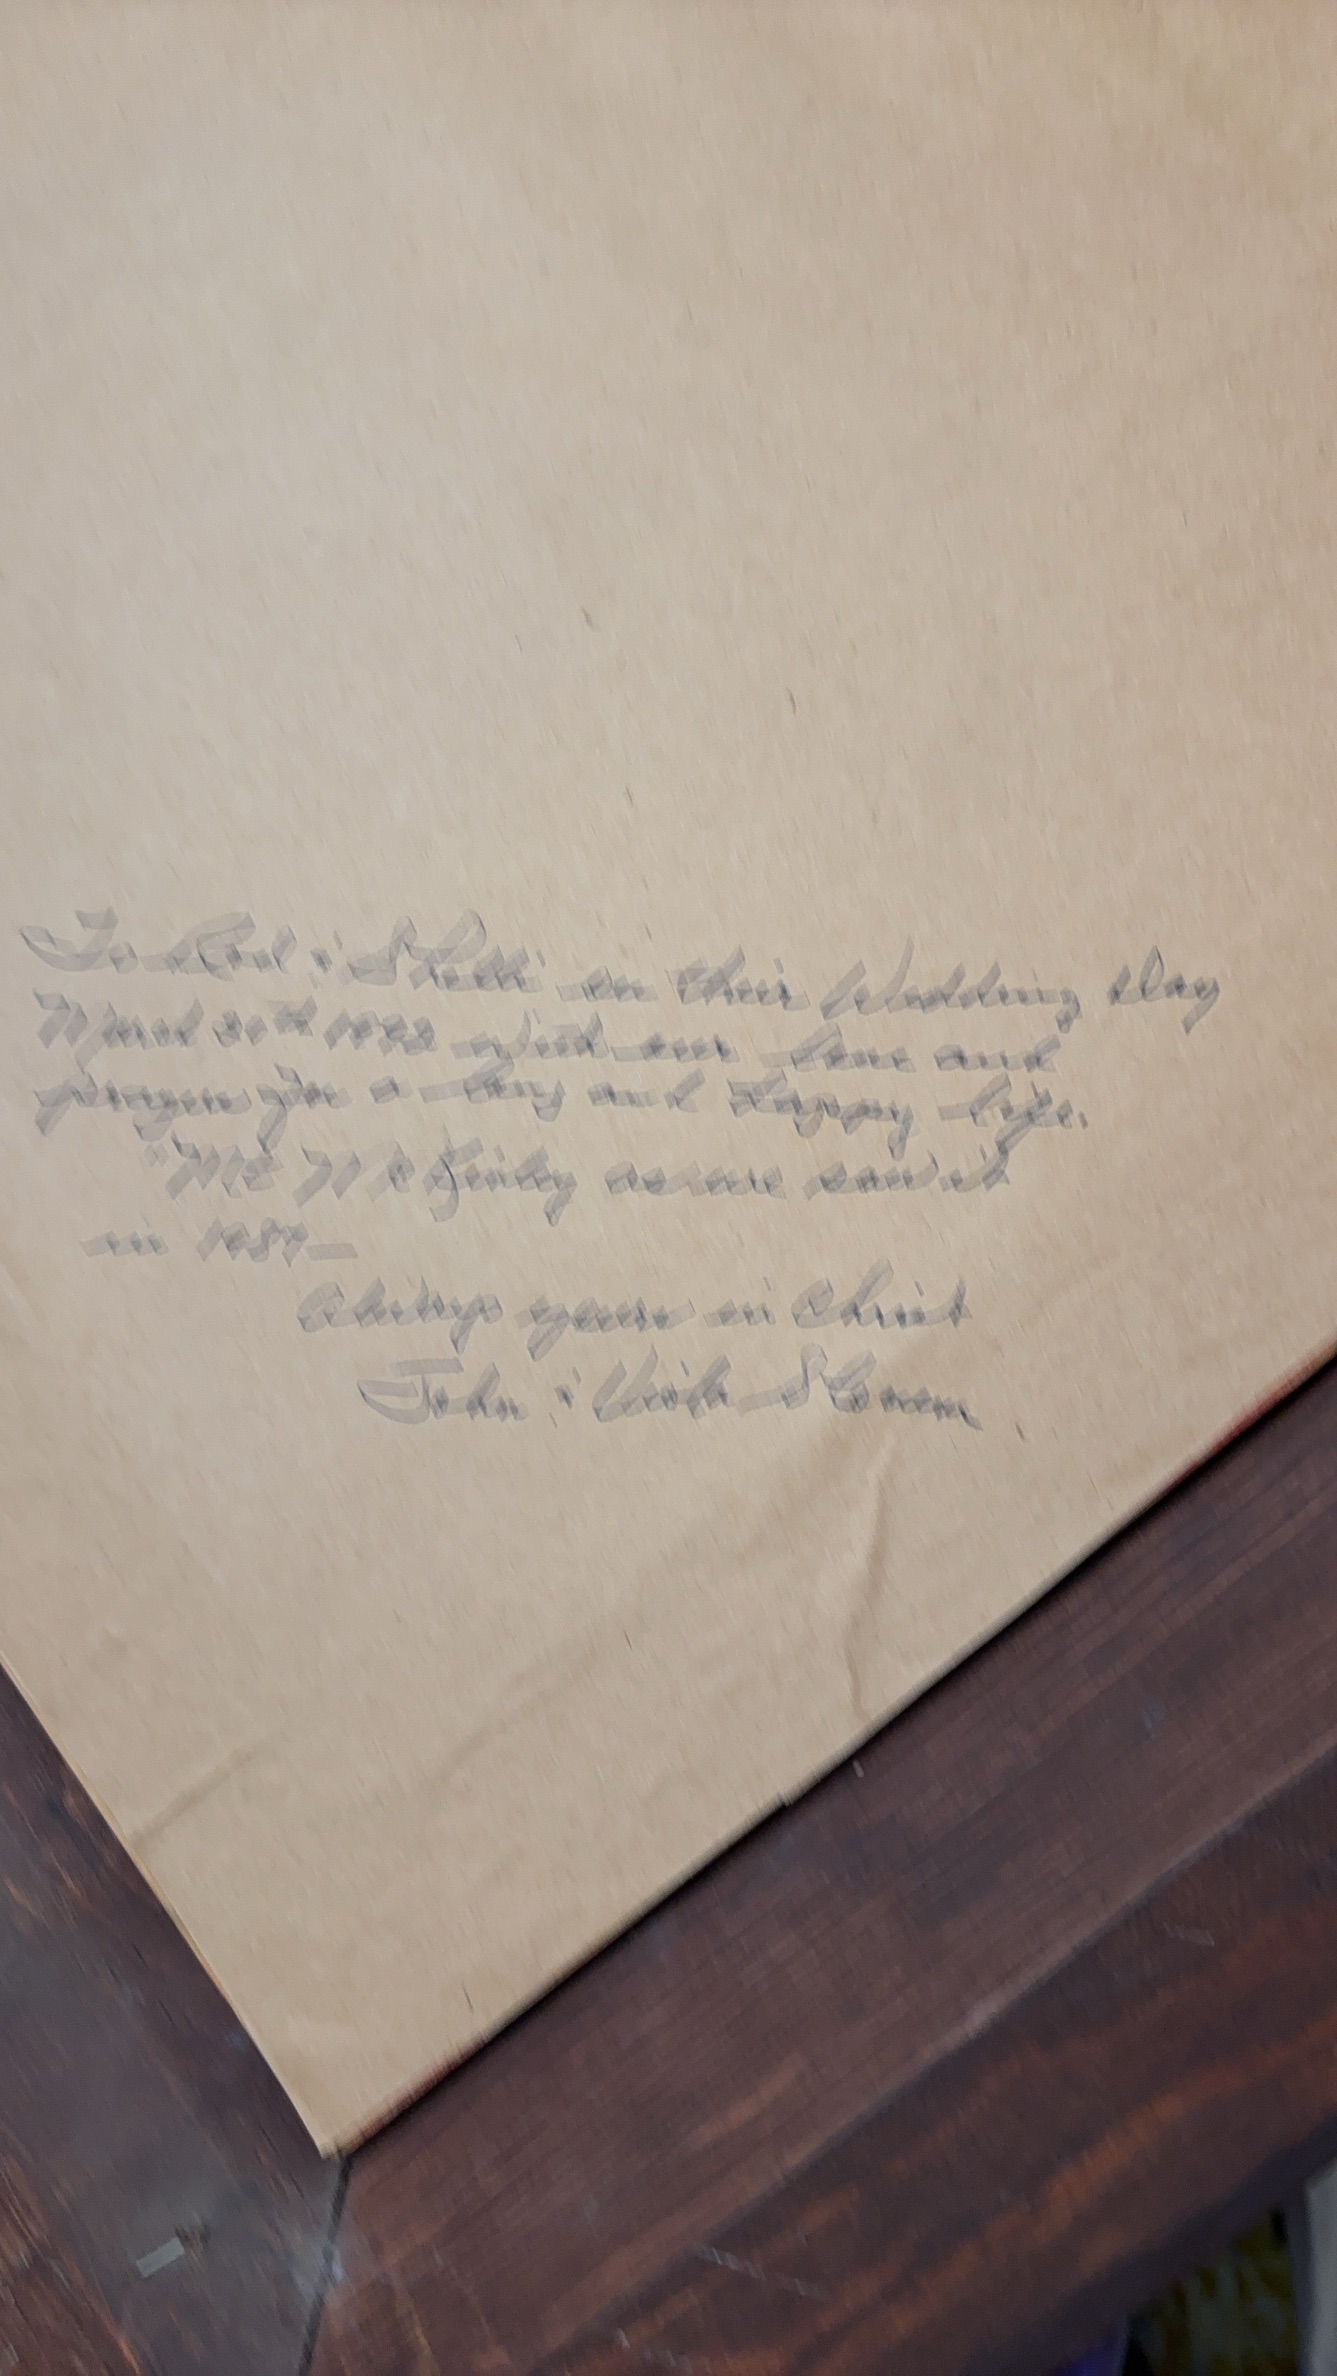 To Rod & Shelli on their Wedding Day
March with our love and
prayers for a long and happy life.
"Mt McKinley as we saw it
in
Always yours in Christ
John &